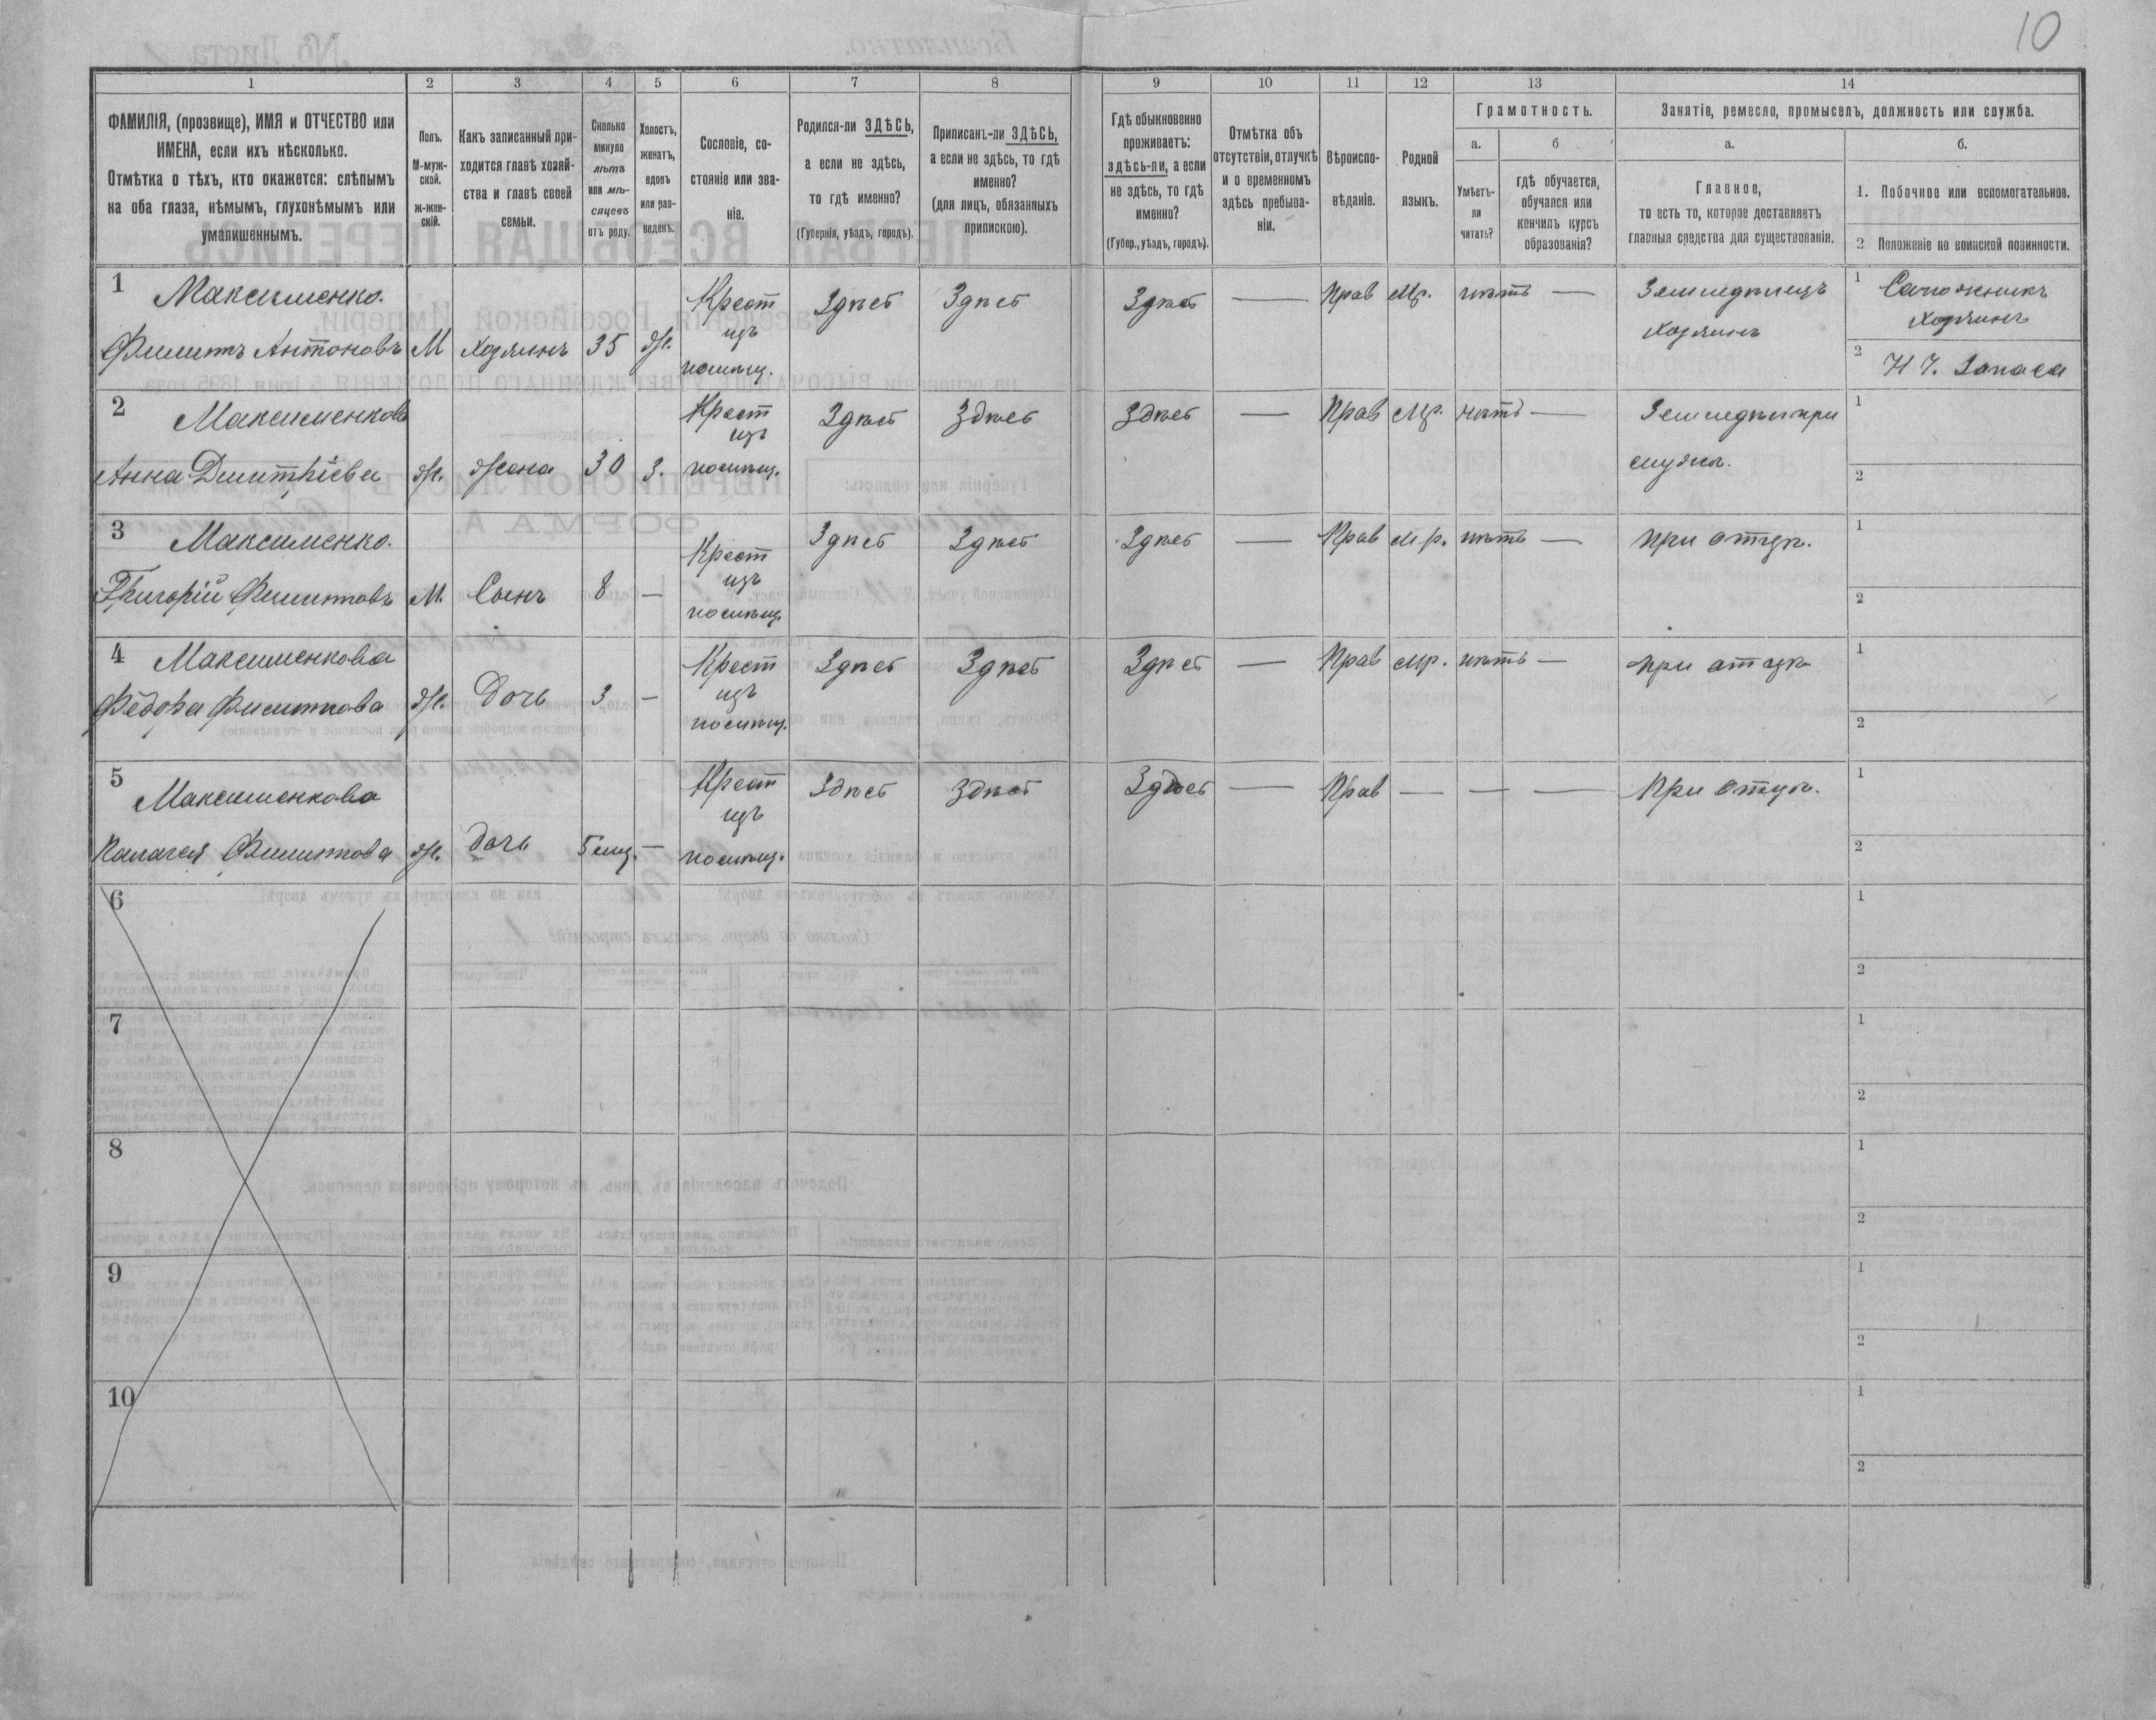 10
1 2 3 4 5 6 7 8 9 10 11 12 13 14
ФАМИЛІЯ, (прозвище), ИМЯ и ОТЧЕСТВО или
ИМЕНА, если ихъ нѣсколько.
Отмѣтка о тѣхъ, кто окажется: слѣпымъ
на оба глаза, нѣмымъ, глухонѣмымъ или
умалишеннымъ.
Полъ.
М-муж-
ской.
ж-жен-
скій.
Какъ записанный при-
ходится главѣ хозяй-
ства и главѣ своей
семьи.
Сколько
минуло
лѣтъ
или мѣ-
сяцевъ
отъ роду.
Холостъ,
женатъ,
вдовъ
или раз-
веденъ.
Сословіе, со-
стояніе или зва-
ніе.
Родился-ли ЗДѢСЬ,
а если не здѣсь,
то гдѣ именно?
(Губернія, уѣздъ, городъ).
Приписанъ-ли ЗДѢСЬ,
а если не здѣсь, то гдѣ
именно?
(для лицъ, обязанныхъ
припискою).
Гдѣ обыкновенно
проживаетъ:
здѣсь-ли, а если
не здѣсь, то гдѣ
именно?
(Губер., уѣздъ, городъ).
Отмѣтка объ
отсутствіи, отлучкѣ
и о временномъ
здѣсь пребыва-
ніи.
Вѣроиспо-
вѣданіе.
Родной
языкъ.
Грамотность.
а.
Умѣетъ-
ли
читать?
б
гдѣ обучается,
обучался или
кончилъ курсъ
образованія?
Занятія, ремесло, промыселъ, должность или служба.
а.
Главное,
то есть то, которое доставляетъ
главныя средства для существованія.
б.
1. Побочное или вспомогательное.
2 Положеніе по воинской повинности.
1 Максименко.
Филиппъ Антоновъ М Хозяинъ 35 ж.
Крест
изъ
Здѣсь Здѣсь Здѣсь — Прав Мр. нѣтъ —
Земледѣлецъ
Хозяинъ
1 Сапожникъ
Хозяинъ
2 Н Ч. Запаса
2 Максименкова
Анна Дмитріева ж. Жена 30 З.
Крест
изъ
Здѣсь Здѣсь Здѣсь — Прав Мр. нѣтъ —
1
2
3 Максименко.
Григорій Филипповъ М. Сынъ 8 —
Крест
изъ
Здѣсь Здѣсь Здѣсь — Прав Мр. нѣтъ —
при отцѣ.
1
2
4 Максименкова
Ѳедора Филиппова ж. дочь 3 —
Крест
изъ
Здѣсь Здѣсь Здѣсь — Прав Мр. нѣтъ —
при отцѣ
1
2
5 Максименкова
Палагея Филиппова ж. дочь 5 мц. —
Крест
изъ
Здѣсь Здѣсь Здѣсь — Прав — — —
При отцѣ.
1
2
6
1
2
7
1
2
8
1
2
9
1
2
10
1
2